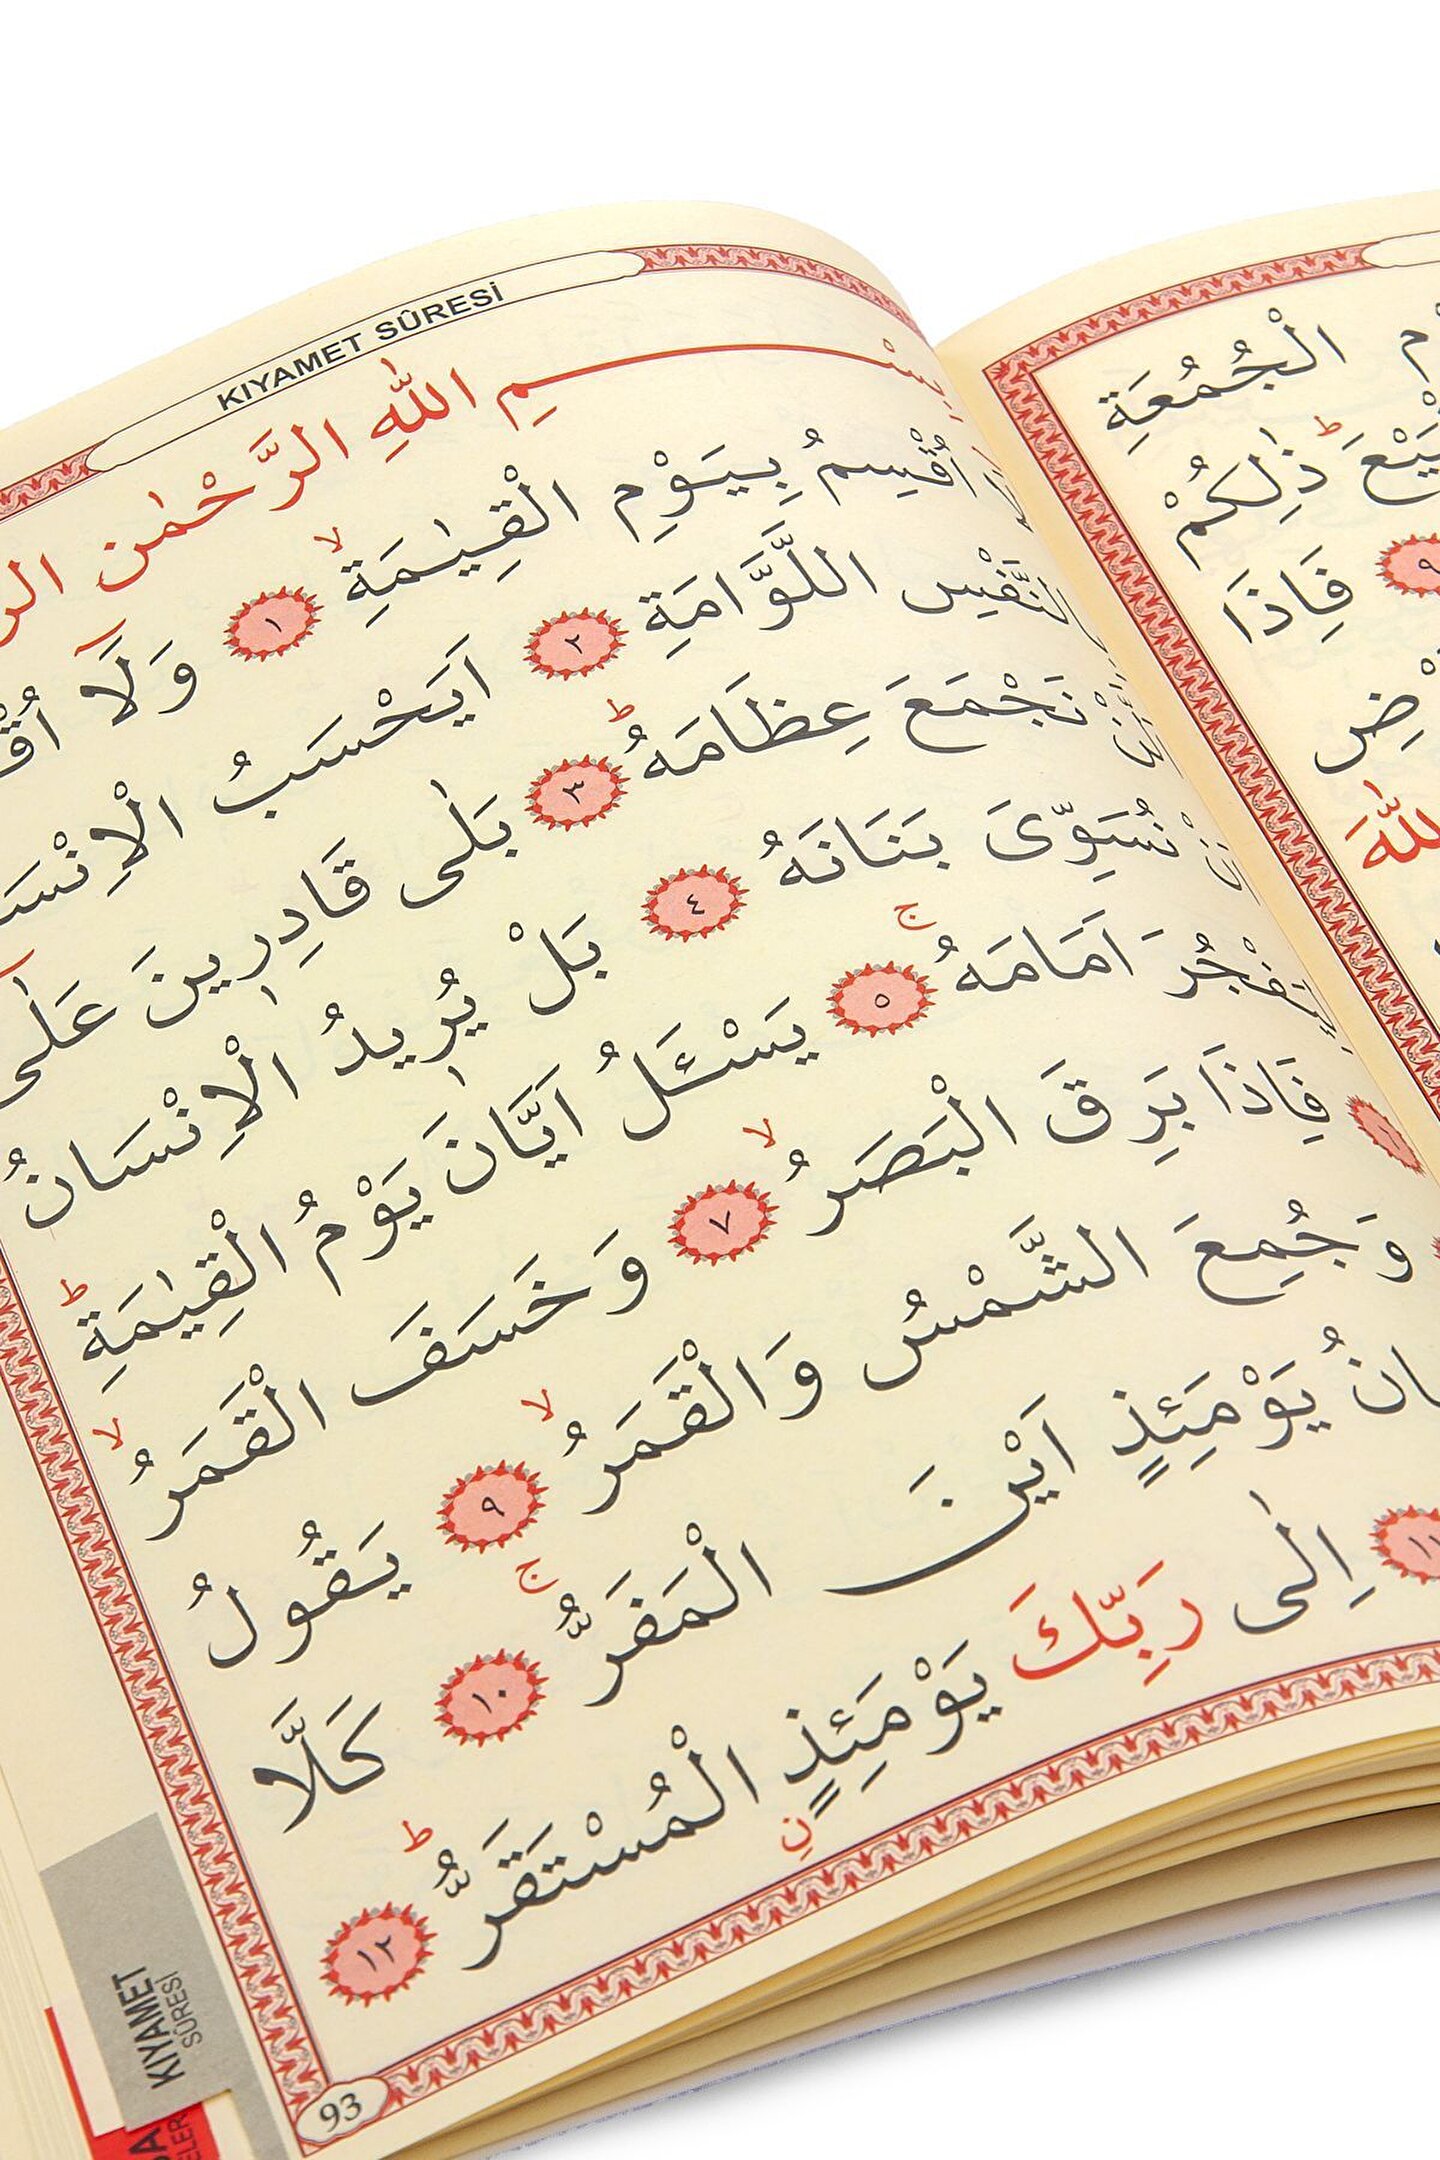 KIYAMET SÛRESİ
بِسْمِ اللّٰهِ الرَّحْمٰنِ الر
لَٓا اُقْسِمُ بِيَوْمِ الْقِيٰمَةِۙ ﴿١﴾ وَلَٓا اُقْ
بِالنَّفْسِ اللَّوَّامَةِ ﴿٢﴾ اَيَحْسَبُ الْاِنْسَا
نَجْمَعَ عِظَامَهُۜ ﴿٣﴾ بَلٰى قَادِر۪ينَ عَلٰٓى
نُسَوِّىَ بَنَانَهُ ﴿٤﴾ بَلْ يُر۪يدُ الْاِنْسَانُ
لِيَفْجُرَ اَمَامَهُۚ ﴿٥﴾ يَسْـَٔلُ اَيَّانَ يَوْمُ الْقِيٰمَةِۜ
فَاِذَا بَرِقَ الْبَصَرُۙ ﴿٧﴾ وَخَسَفَ الْقَمَرُۙ
وَجُمِعَ الشَّمْسُ وَالْقَمَرُۙ ﴿٩﴾ يَقُولُ
سَانُ يَوْمَئِذٍ اَيْنَ الْمَفَرُّۚ ﴿١٠﴾ كَلَّا
﴿١١﴾ اِلٰى رَبِّكَ يَوْمَئِذٍ الْمُسْتَقَرُّۜ ﴿١٢﴾
93
KIYAMET
SÛRESİ
الْجُمُعَةِ
ذٰلِكُمْ
﴿٩﴾ فَاِذَا